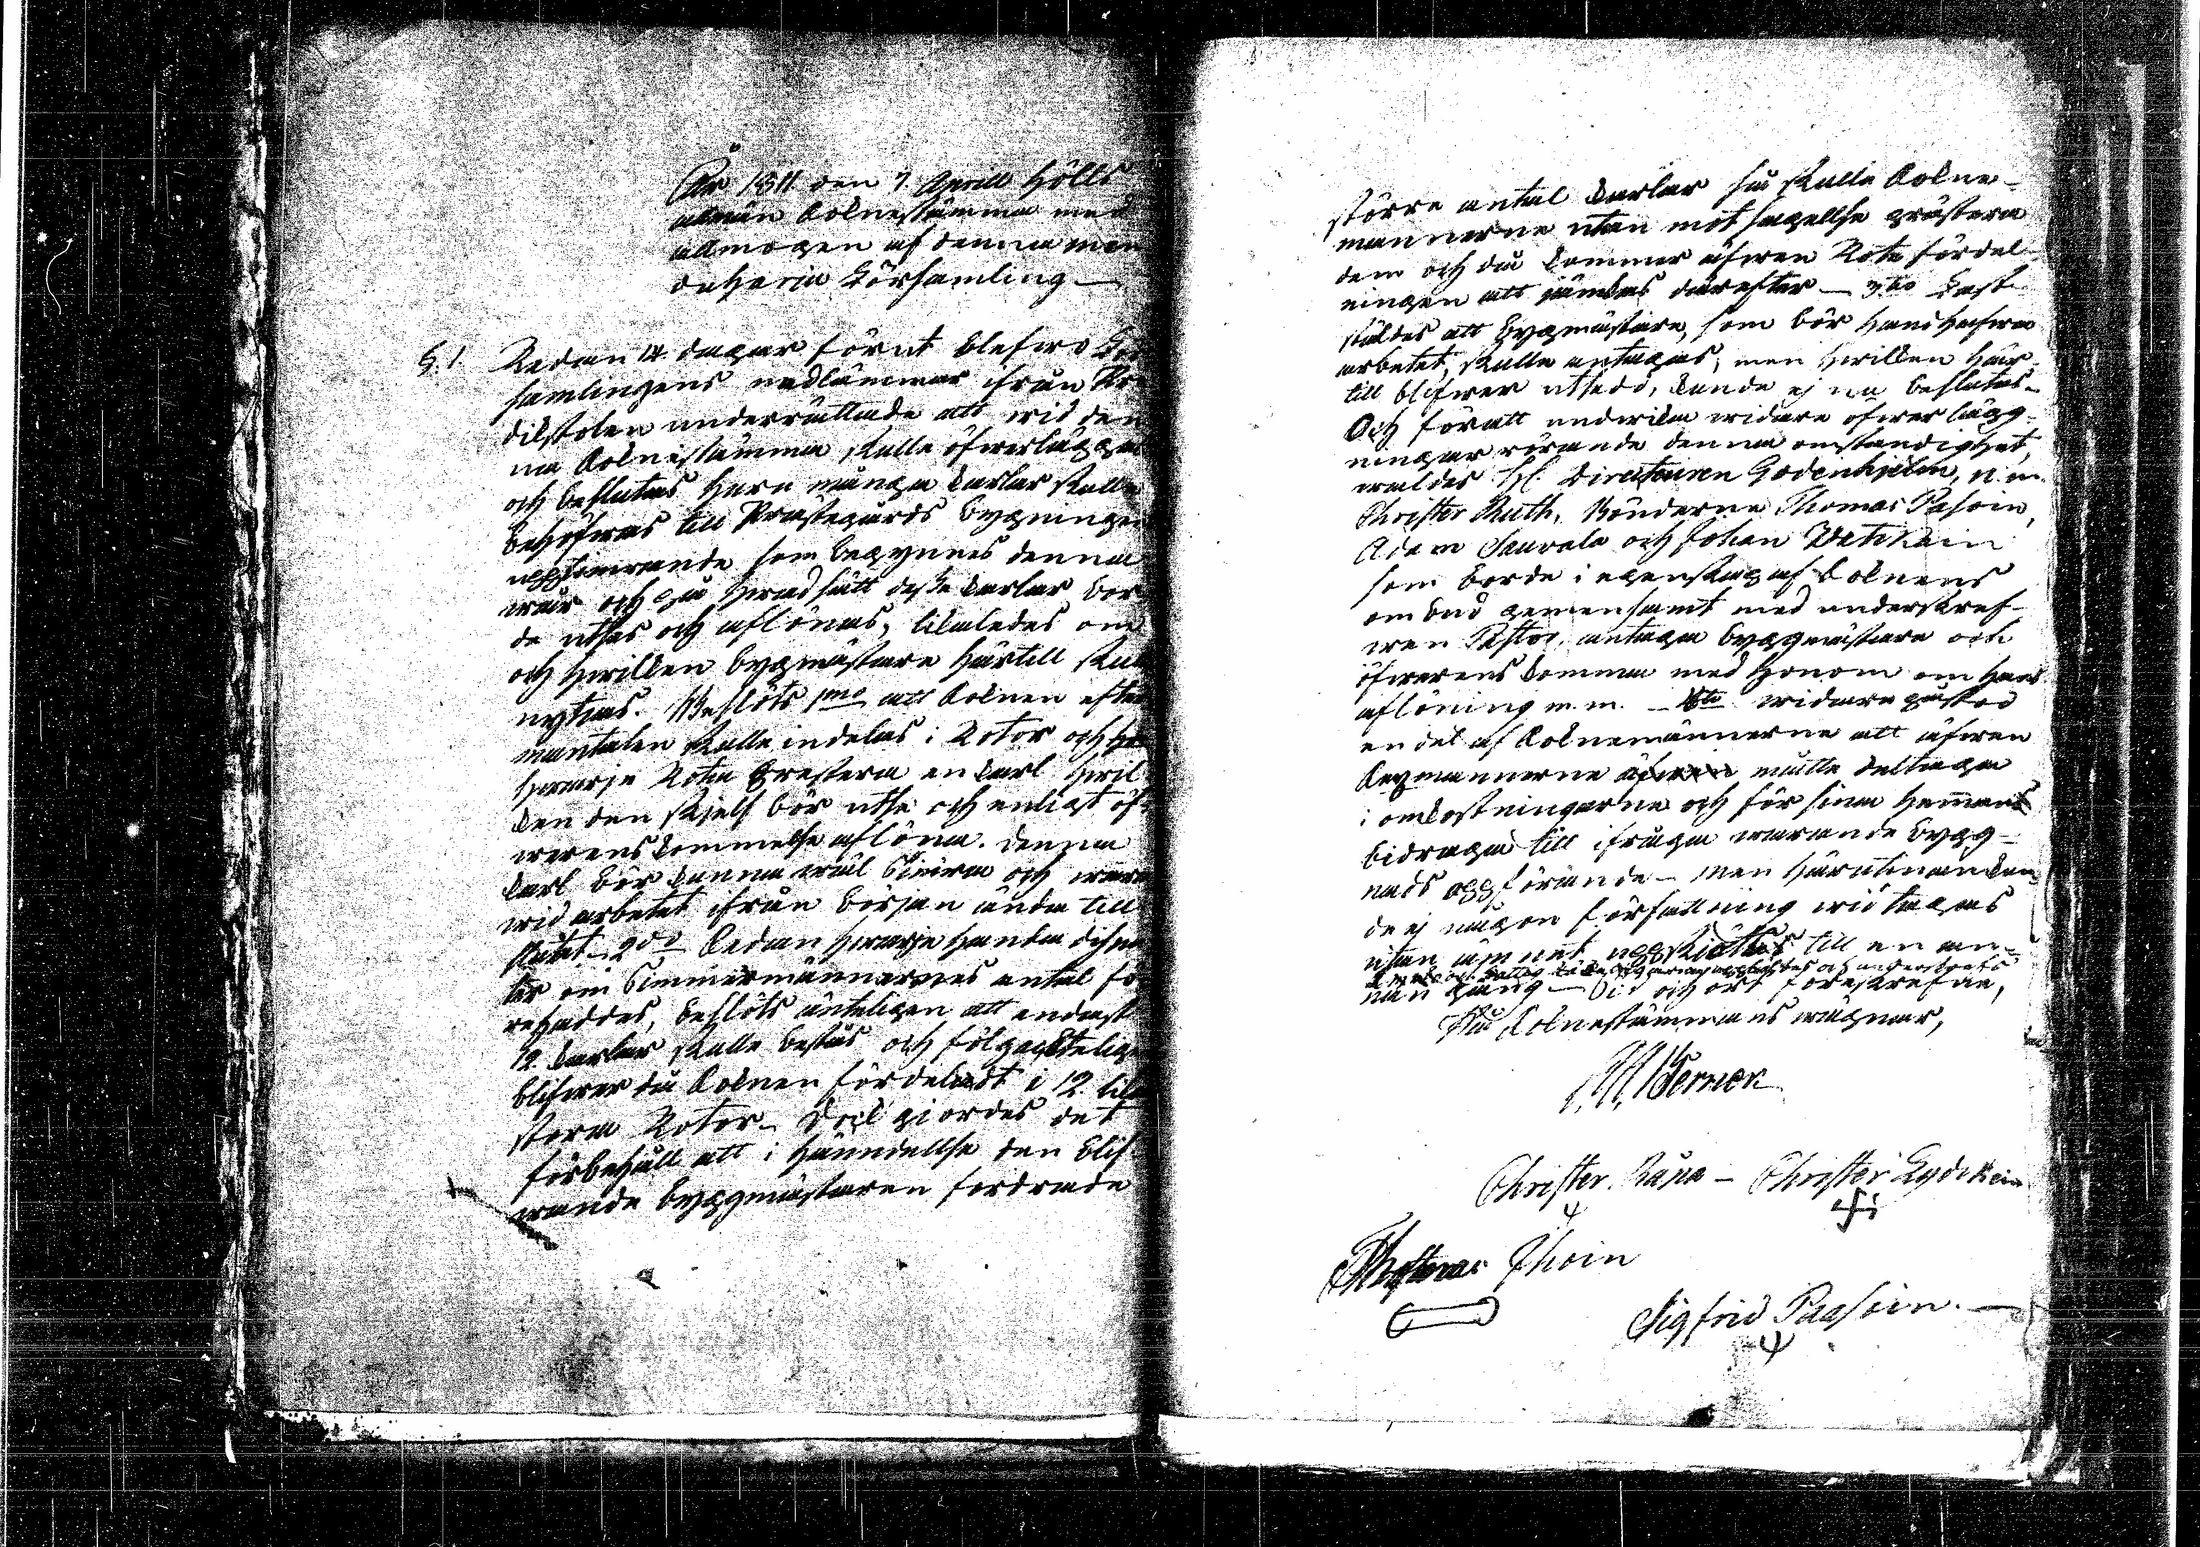 År 1811 den 7 Aprill hölls
allmän Soknestämma med
allmogen af denna Man
daharju Församling —
§. 1. Redan 14 dagar förut blefwo För
samlingens medlemmar ifrån Pre
dikstolen underrättade att wid den
na Soknestämma skulle öfwerläggas
och beslutas huru många karlar skulle
behöfwas till Prästegårds bygningens
uppförande som begynnes denna
wår och på hwad sätt desse karlar bor
de utses och aflönas, likaledes om
och hwilken bygmästare härtill skulle
nyttjas. Beslöts 1mo att Soknen efter
mantalen skulle indelas i Rotor och
hwarje Rota prestera en karl hwil
ken den sjelf bör utse och enligt öf
werenskommelse aflöna. Denna
karl bör kunna wäl timra och wara
wid arbetet ifrån början ända till
slutet. 2do Sedan hwarjehanda dispu
ter om Timmermännernes antal fö
rehaddes, beslöts änteligen att endast
12 karlar skulle bestås och följackteligen
blifwer då Soknen fördeladt i 12 lika
stora Rotor. Dock gjordes det
förbehåll att i händelse den blif
wande byggmästaren fordrade
större antal karlar så skulle Sokne-
männerne utan motsägelse prästera
dem och då kommer äfwen Rote fördel
ningen att jämkas därefter — 3tio Fast-
ställdes att bygmästare, som bör handhafwa
arbetet, skulle antagas, men hwilken här
till blifwer utsedd, kunde ej nu beslutas.
Och för att underlätta widare öfwerlägg-
ningar rörande denna omständighet,
waldes H. Directeuren Godenhjelm, n.m.
Christer Ruth, Bönderne Thomas Pasoin,
Adam Sauvala och Johan
som borde i egenskap af Soknens
ombud gemensamt med underskref-
wen Pastor, antaga byggmästare och
öfwerenskomma med honom om hans
aflöning m.m. — 4to widare påstod
en del af Soknemännerne att äfwen
Bymannerne måtte deltaga
i omkostningarne och för sina hemman
bidraga till ifråga warande bygg-
nads uppförande — men härutinnan kun
de ej någon författning widtagas
utan ämnet uppskiöttes till en an-
nan gång — Tid och ort föreskrefne,
På Soknestämmans wägnar,
Werner
Christer Räpä — Christer Lydikein
Thomas Ihoin
Sigfrid Paasoin.